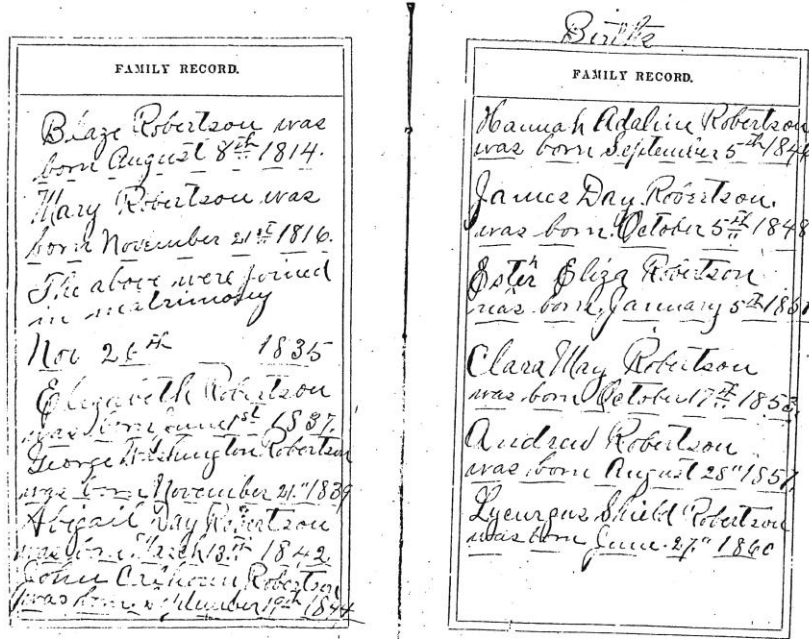 FAMILY RECORD.
Blaze Robertson was
born August 8th 1814.
Mary Robertson was
born November 21st 1816.
The above were joined
in matrimony
Nov 26th 1835
Elizabeth Robertson
was born June 1st 1837.
George Washington Robertson
was born November 21" 1839
Abigail Day Robertson
was born March 13th 1842
John Robertson
was born September 19th 1844
Births
FAMILY RECORD.
Hannah Adaline Robertson
was born September 5th
James Day Robertson.
was born October 5th 1848
Esther Eliza Robertson
was born January 5th
Clara May Robertson
was born October 17th 1853
Andrew Robertson
was born August 28" 1857
Lycurgus Shield Robertson
was born June 27" 1860